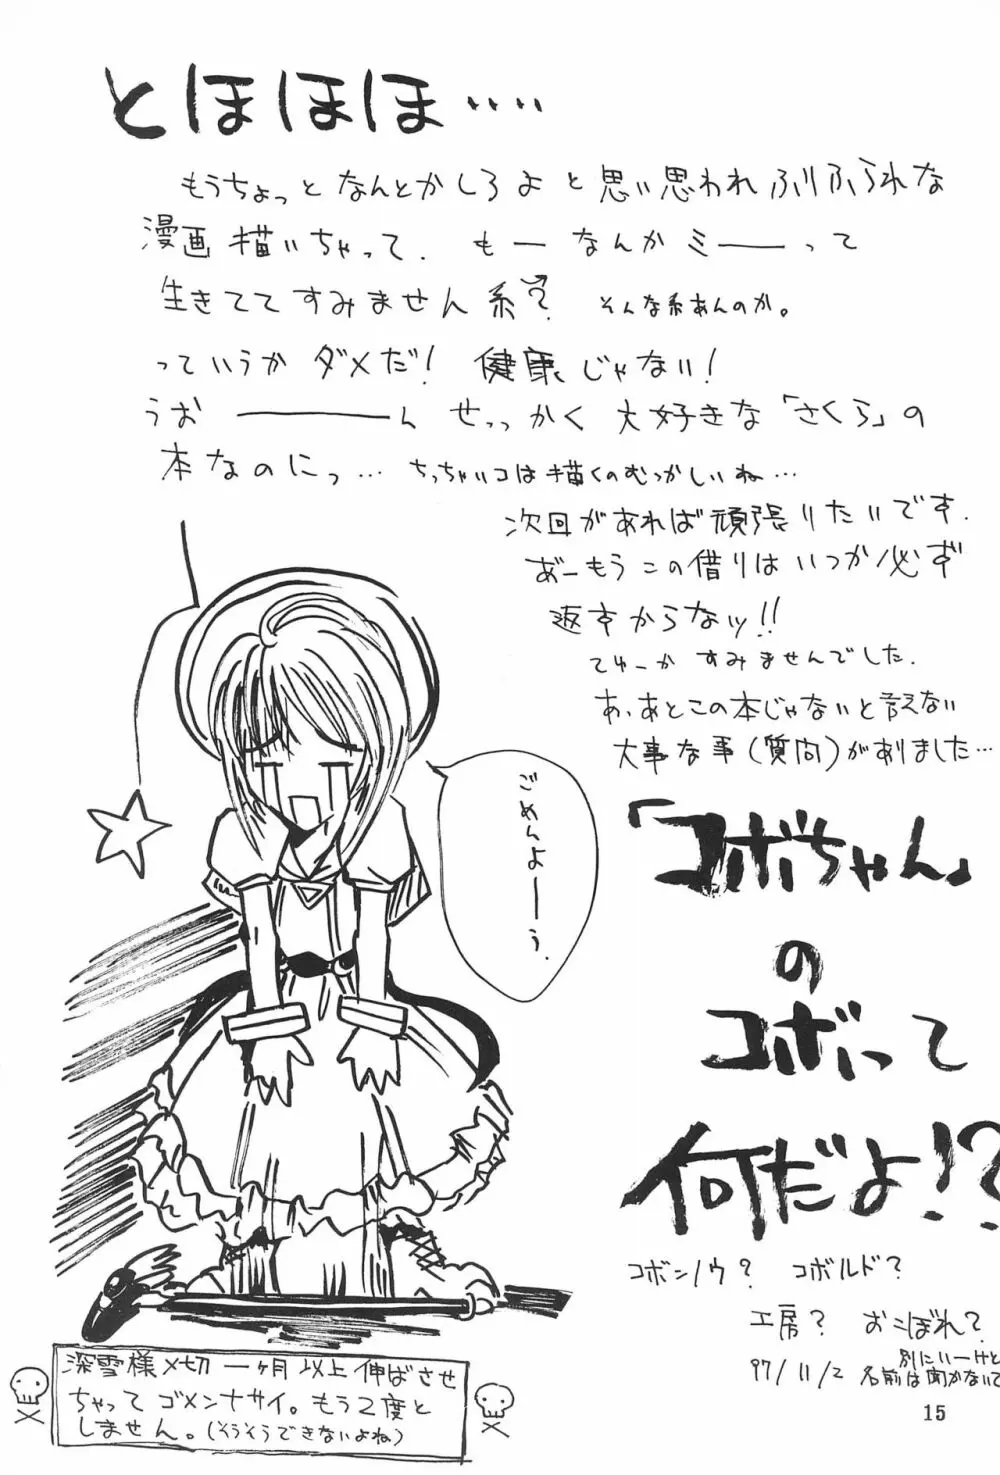 とほほほ‥‥
もうちょっとなんとかしろよと思い思われふりふられな
漫画描いちゃって. もーなんかミーーーって
生きててすみません系? そんな系あんのか。
っていうかダメだ! 健康じゃない!
うおーーーーん せっかく大好きな「さくら」の
本なのにっ… ちっちゃいコは描くのむつかしいね…
次回があれば頑張りたいです.
あーもうこの借りはいつか必ず
返すからなッ!!
てゆーかすみませんでした.
あ、あとこの本じゃないと言えない
大事な事(質問)がありました…
ごめんよーう.
「コボちゃん」
の
コボって
何だよ!?
コボンノウ? コボルド?
工房? おこぼれ?
別にいーけど
97/11/2 名前は聞かないで
深雪様〆切一ヶ月以上伸ばさせ
ちゃってゴメンナサイ。もう2度と
しません。(そうそうできないよね)
15